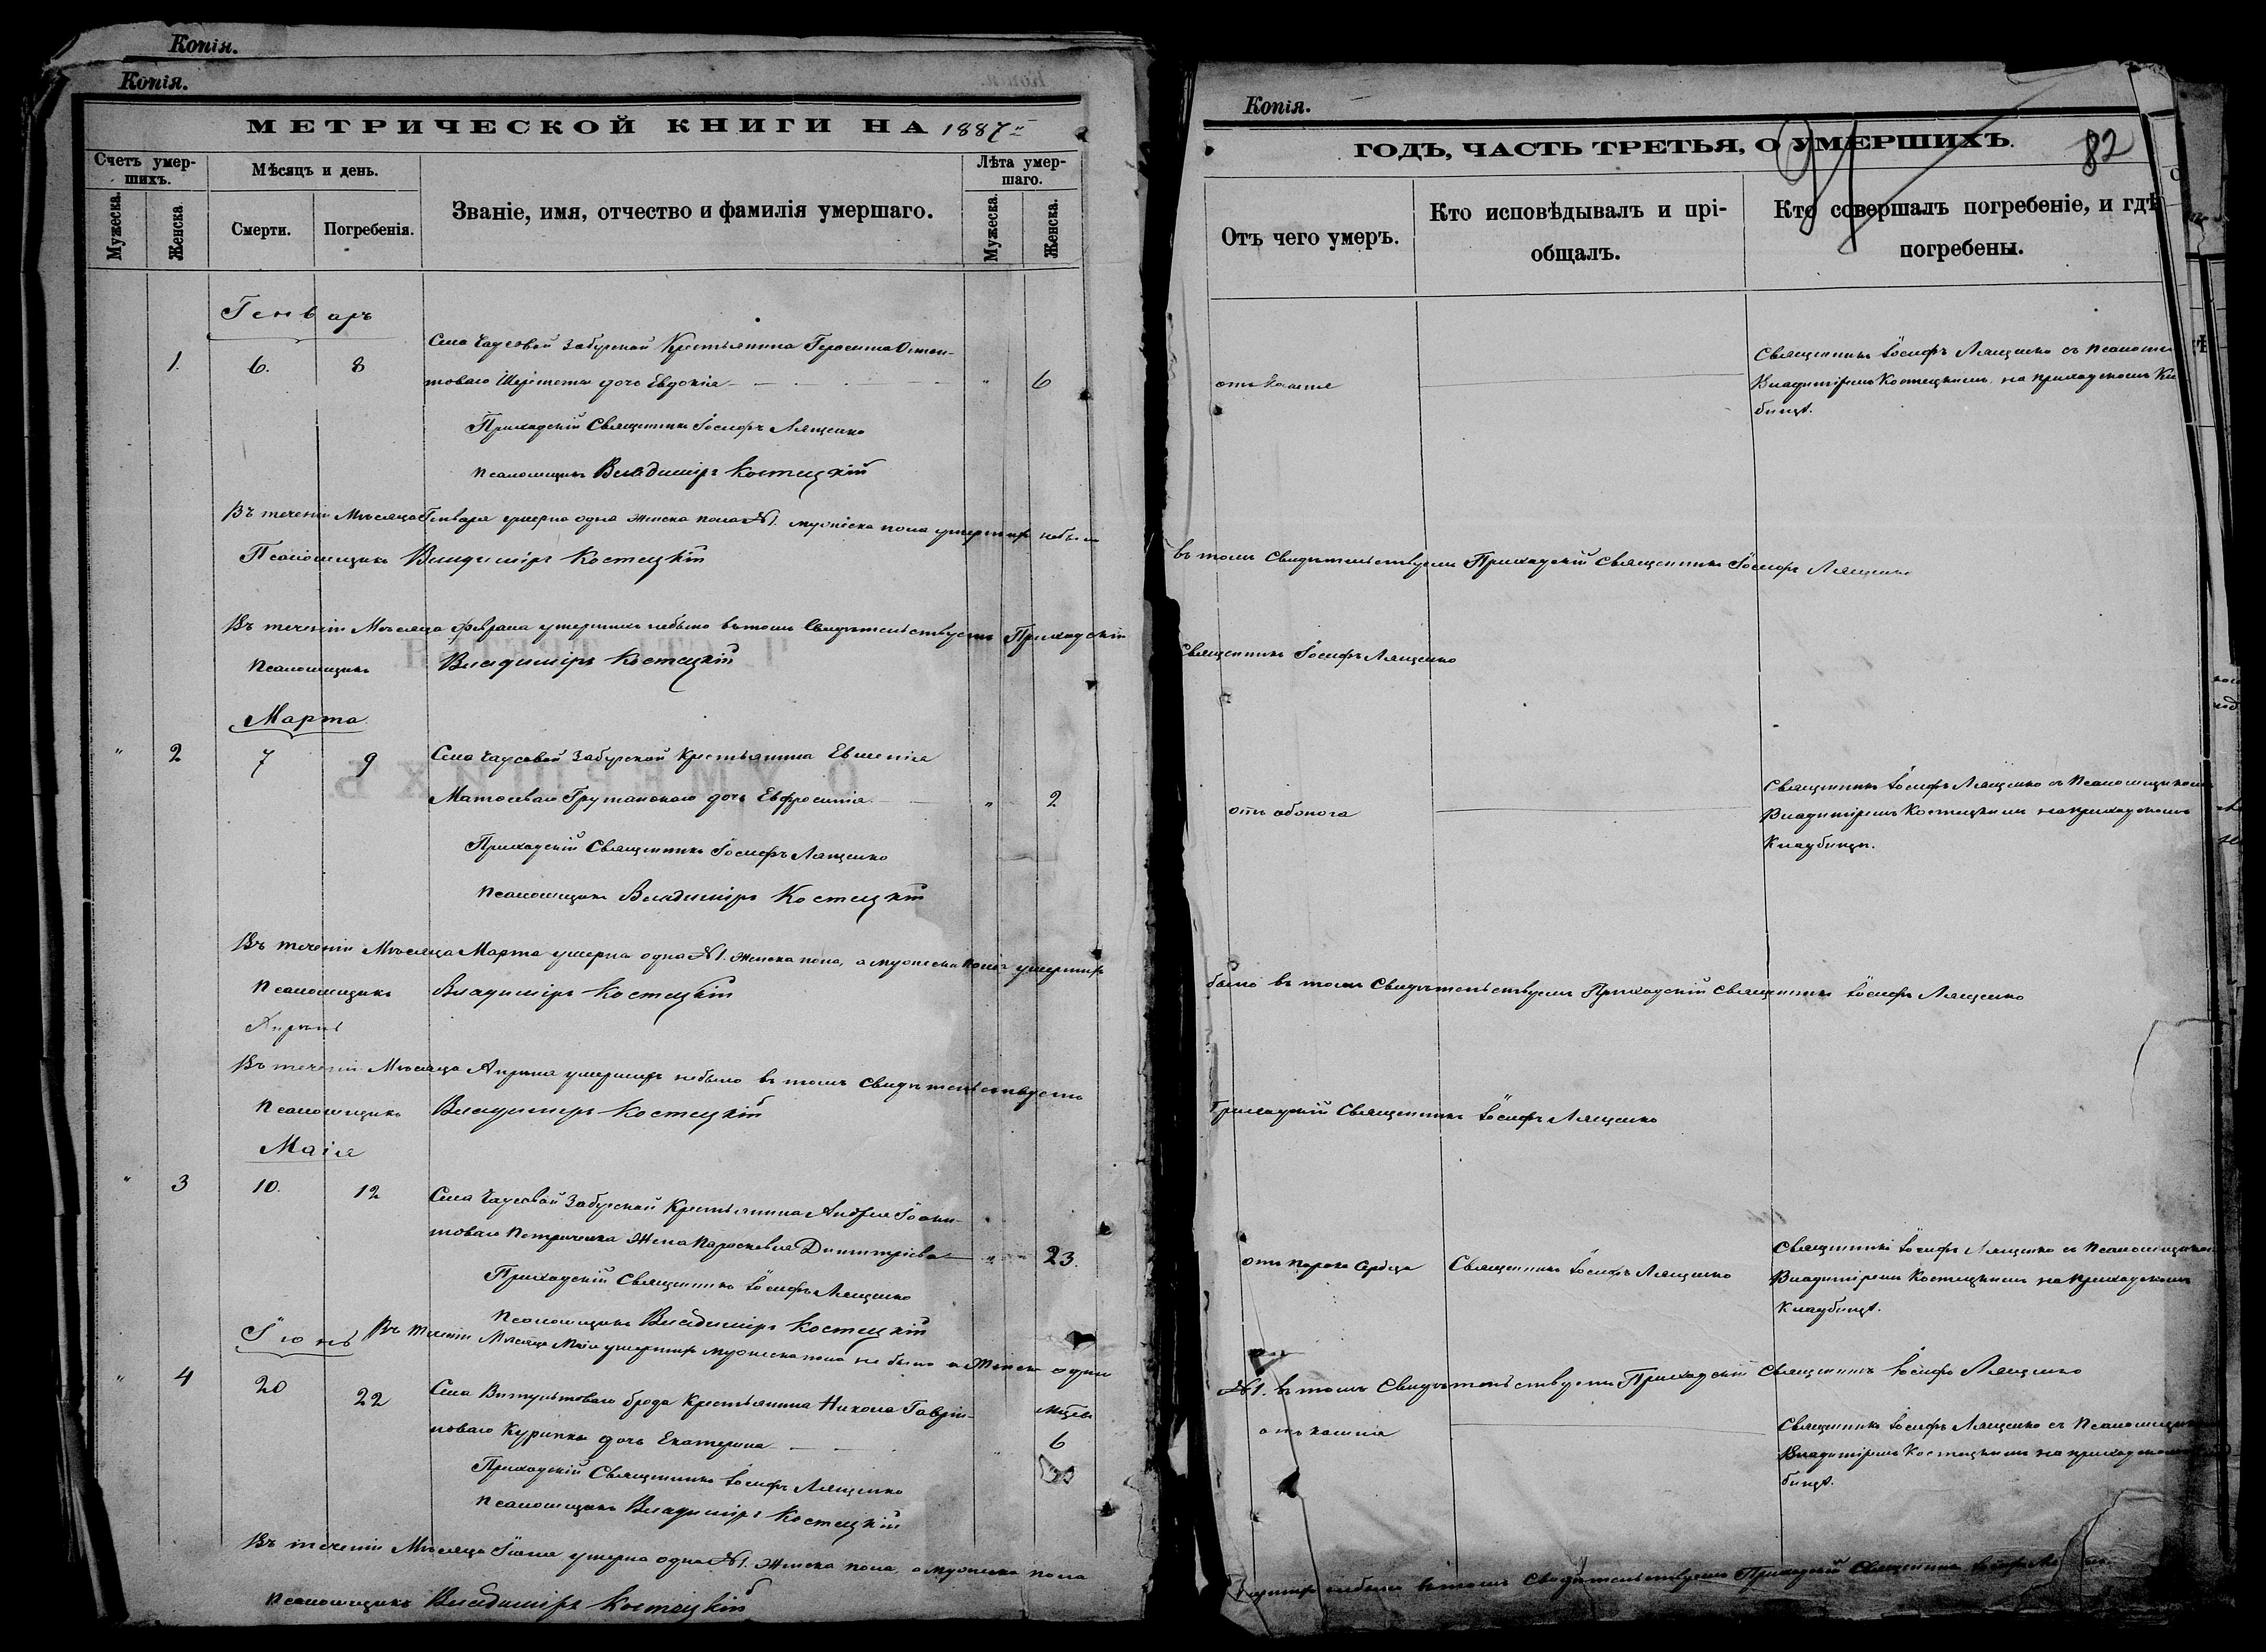 Копія.
Копія.
МЕТРИЧЕСКОЙ КНИГИ НА 1887
Счетъ умер-
шихъ.
Мѣсяцъ и день.
Званіе, имя, отчество и фамилія умершаго.
Лѣта умер-
шаго.
Мужеска.
Женска.
Смерти.
Погребенія.
Мужеска.
Женска.
Генварь
1. 6. 8 Села Чаусовой Забугской Крестьянина Герасима
дочь Евдокія " 6
Приходскій Священникъ Іосифъ Лященко
Псаломщикъ Владиміръ Костецкій
Въ теченіи Мѣсяца Генваря умерла одна женска пола №1. мужеска пола умершихъ небыло
Псаломщикъ Владиміръ Костецкій
Въ теченіи Мѣсяца Февраля умершихъ небыло въ томъ Свидѣтельствуемъ Приходскій
Псаломщикъ Владиміръ Костецкій
Марта
" 2 7 9 Села Чаусовой Забугской Крестьянина Евменія
дочь Евфросинія " 2
Приходскій Священникъ Іосифъ Лященко
Псаломщикъ Владиміръ Костецкій
Въ теченіи Мѣсяца Марта умерла одна №1. женска пола, а мужеска пола умершихъ
Псаломщикъ Владиміръ Костецкій
Апрѣль
Въ теченіи Мѣсяца Апрѣля умершихъ небыло въ томъ Свидѣтельствуемъ
Псаломщикъ Владиміръ Костецкій
Маія
" 3 10. 12 Села Чаусовой Забугской Крестьянина Андрея
Жена Параскевія Димитріева " 23.
Приходскій Священникъ Іосифъ Лященко
Псаломщикъ Владиміръ Костецкій
Іюнь Въ теченіи Мѣсяца Маія умершихъ мужеска пола не было а женск одна
" 4 20 22 Села Витултоваго брода Крестьянина Никола Гавріи-
ловаго дочь Екатерина " мѣсяц. 6
Приходскій Священникъ Іосифъ Лященко
Псаломщикъ Владиміръ Костецкій
Въ теченіи Мѣсяца Іюня умерла одна №1. женска пола, а мужеска пола
Псаломщикъ Владиміръ Костецкій
Копія.
ГОДЪ, ЧАСТЬ ТРЕТЬЯ, О УМЕРШИХЪ.
82
Отъ чего умеръ.
Кто исповѣдывалъ и прі-
общалъ.
Кто совершалъ погребеніе, и гдѣ
погребены.
отъ кашля
Священникъ Іосифъ Лященко съ Псаломщ
Владиміромъ Костецкимъ, на приходскомъ Кл
бищѣ.
въ томъ Свидѣтельствуемъ Приходскій Священникъ Іосифъ Лященко
Священникъ Іосифъ Лященко
отъ обжога
Священникъ Іосифъ Лященко съ Псаломщикомъ
Владиміромъ Костецкимъ на приходскомъ
Кладбищѣ.
было въ томъ Свидѣтельствуемъ Приходскій Священникъ Іосифъ Лященко
Приходскій Священникъ Іосифъ Лященко
отъ порока Сердца
Священникъ Іосифъ Лященко
Священникъ Іосифъ Лященко съ Псаломщикомъ
Владиміромъ Костецкимъ на приходскомъ
Кладбищѣ.
№1. въ томъ Свидѣтельствуемъ Приходскій Священникъ Іосифъ Лященко
отъ кашля
Священникъ Іосифъ Лященко съ Псаломщикомъ
Владиміромъ Костецкимъ на приходскомъ
бищѣ.
умершихъ небыло въ томъ Свидѣтельствуемъ Приходскій Священникъ Іосифъ